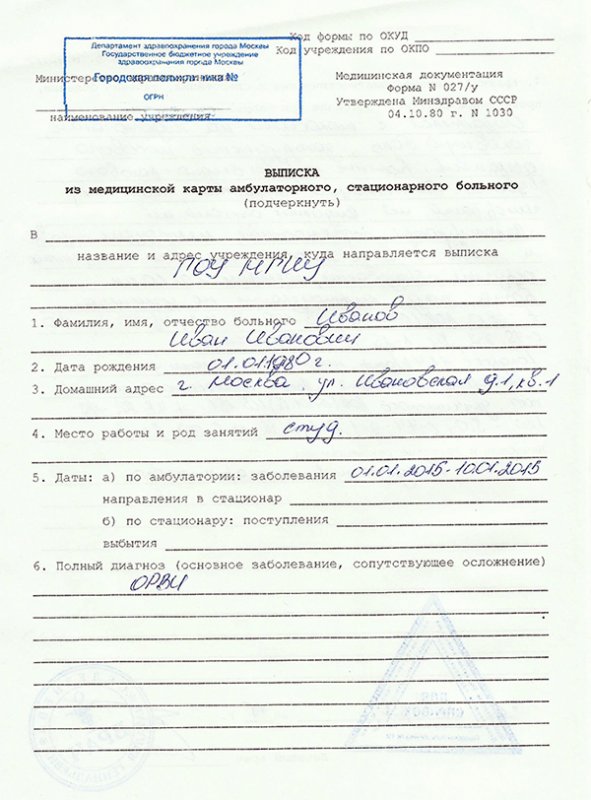 Код формы по ОКУД
Код учреждения по ОКПО
Департамент здравоохранения города Москвы
Государственное бюджетное учреждение
здравоохранения города Москвы
Городская поликлиника №
ОГРН
Министерство здравоохранения
наименование учреждения
Медицинская документация
Форма N 027/у
Утверждена Минздравом СССР
04.10.80 г. N 1030
ВЫПИСКА
из медицинской карты амбулаторного, стационарного больного
(подчеркнуть)
В
название и адрес учреждения, куда направляется выписка
ГОУ МГИУ
1. Фамилия, имя, отчество больного Иванов
Иван Иванович
2. Дата рождения 01.01.1980 г.
3. Домашний адрес г. Москва, ул. Ивановская д.1, кв.1
4. Место работы и род занятий студ.
5. Даты: а) по амбулатории: заболевания 01.01.2015-10.01.2015
направления в стационар
б) по стационару: поступления
выбытия
6. Полный диагноз (основное заболевание, сопутствующее осложнение)
ОРВИ